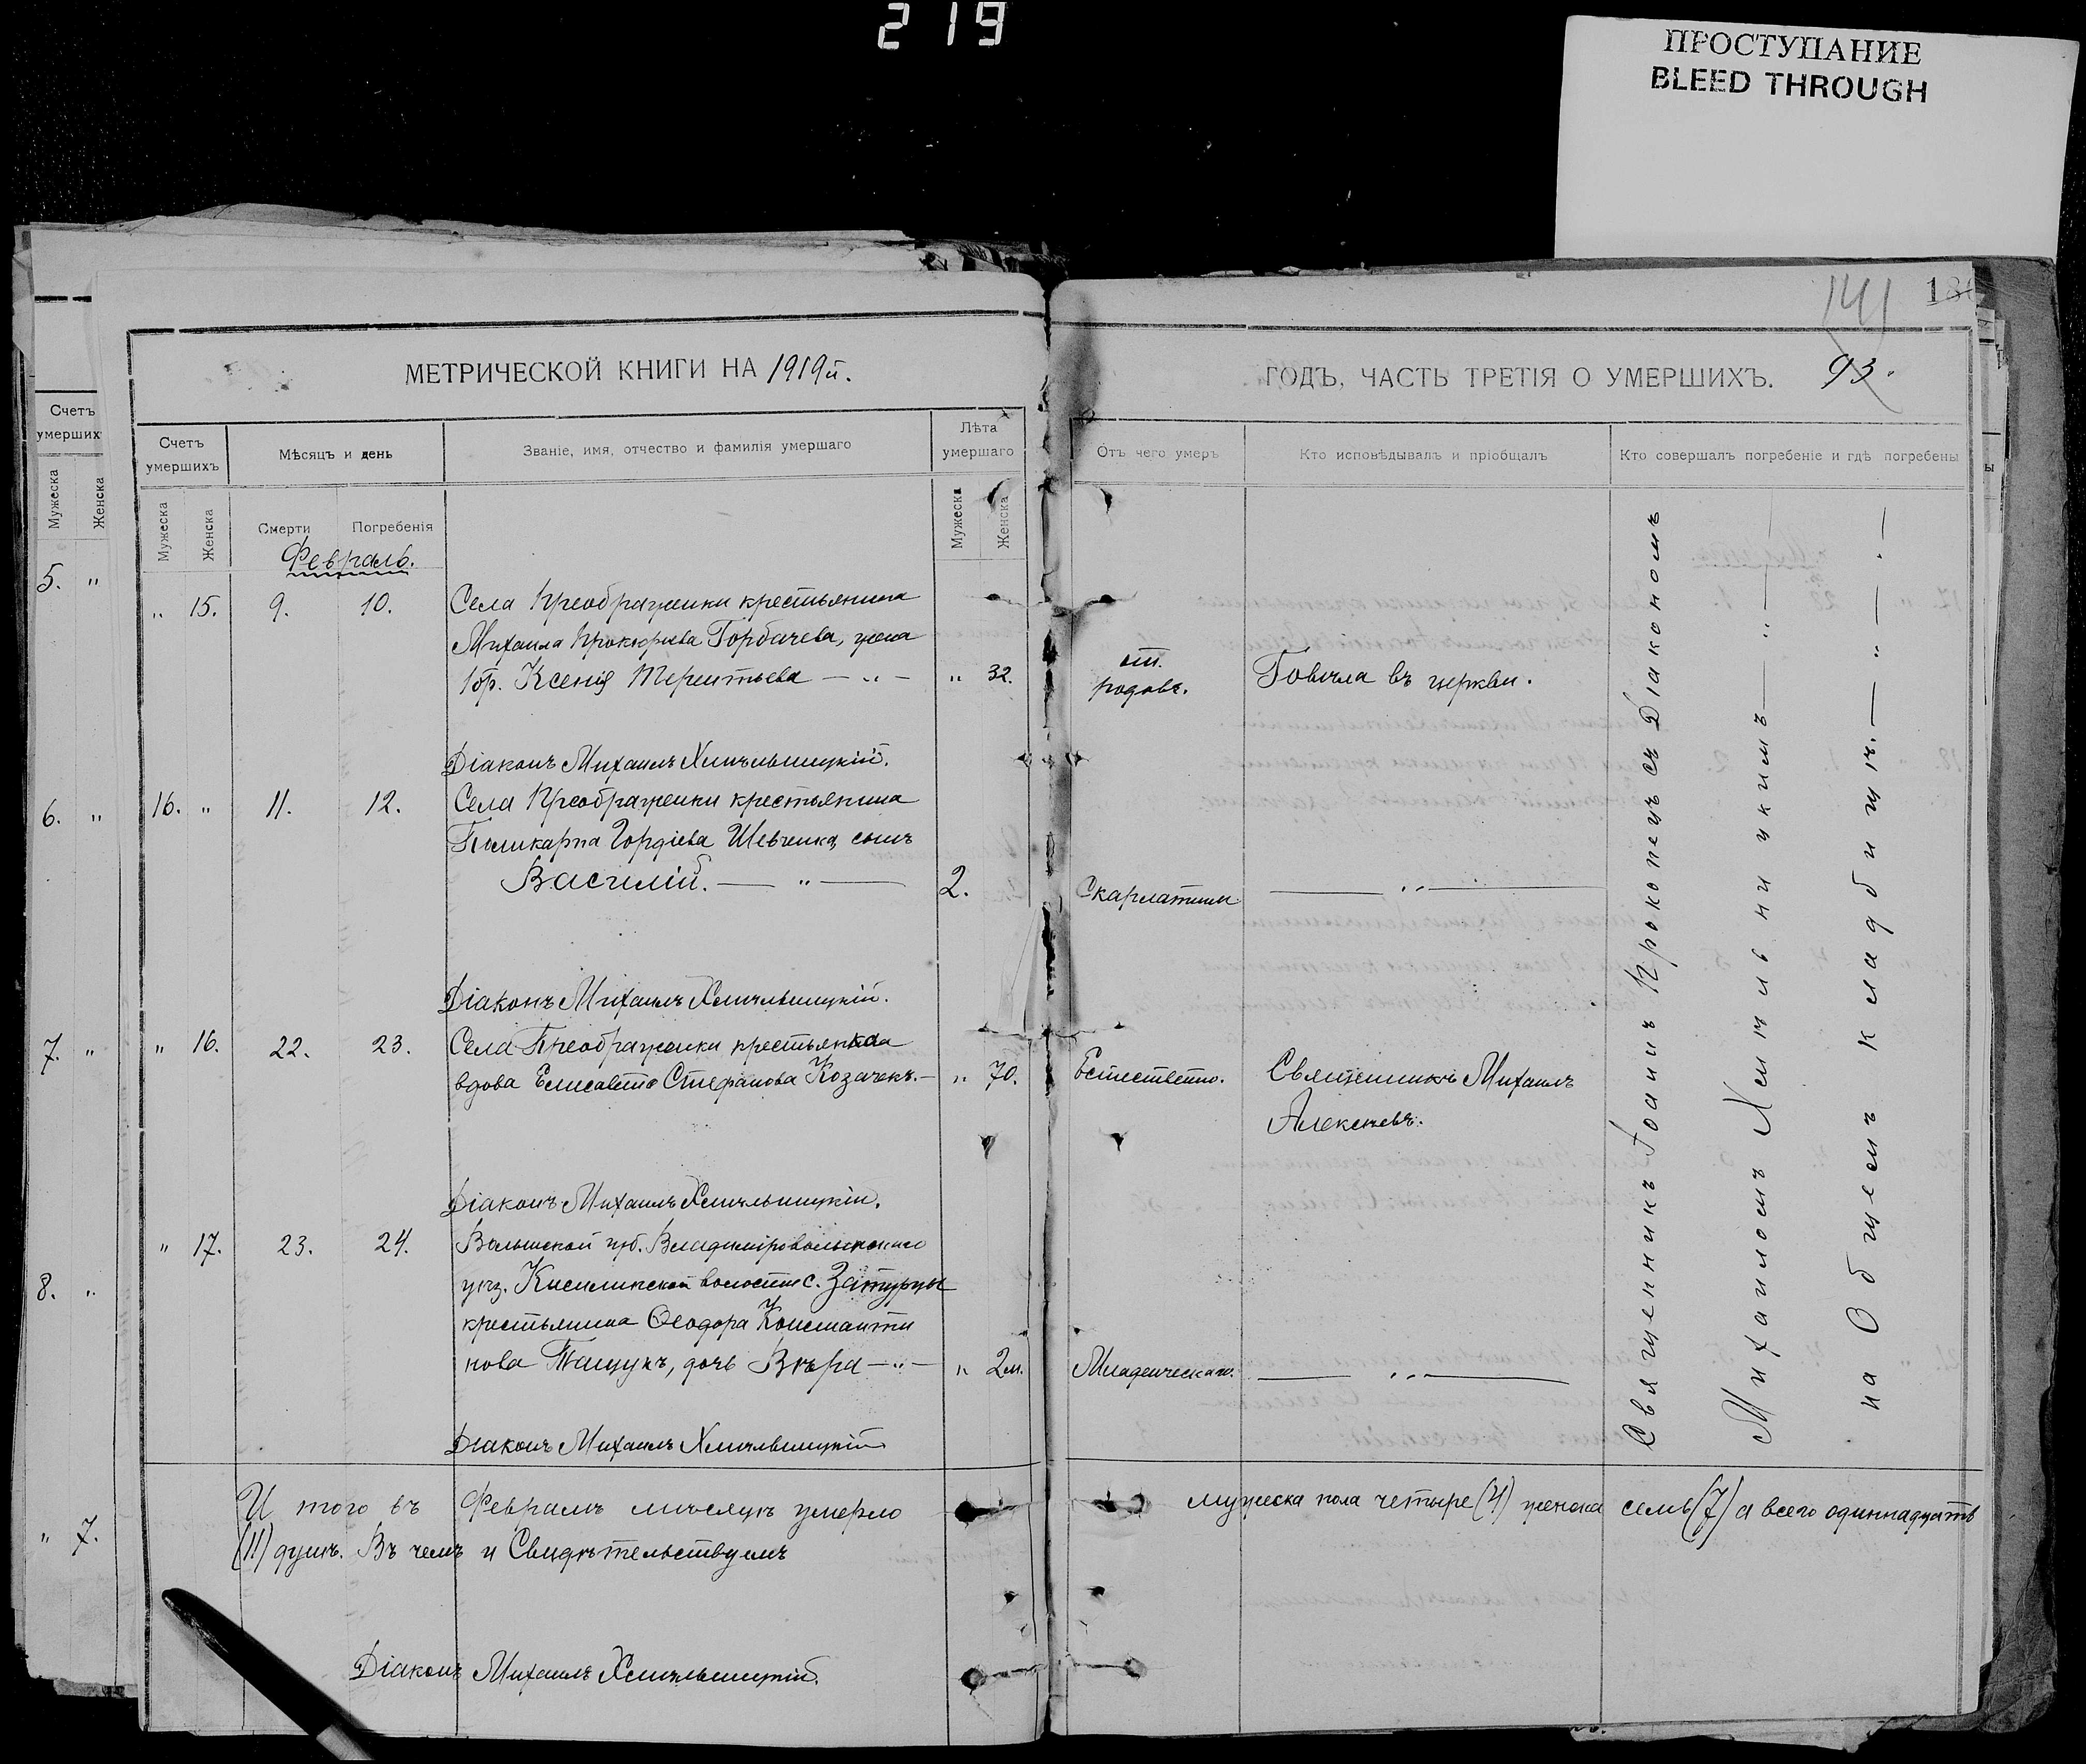 219
ПРОСТУПАНИЕ
BLEED THROUGH
141
93.
МЕТРИЧЕСКОЙ КНИГИ НА 1919й.
ГОДЪ, ЧАСТЬ ТРЕТІЯ О УМЕРШИХЪ.
Счетъ умершихъ
Мѣсяцъ и день
Званіе, имя, отчество и фамилія умершаго
Лѣта умершаго
Отъ чего умеръ
Кто исповѣдывалъ и пріобщалъ
Кто совершалъ погребеніе и гдѣ погребены
Мужеска Женска
Смерти Погребенія
Мужеска Женска
Февраль.
„ 15. 9. 10. Села Преображенки крестьянина
Михаила Прокофіева Горбачева, жена
Ксенія Терентьева — „ — „ 32. от родовъ. Говѣла въ церкви.
Діаконъ Михаилъ Хмѣльницкій.
16. „ 11. 12. Села Преображенки крестьянина
Поликарпа Гордіева Шевченка, сынъ
Василій. — „ — 2. Скарлатины — „ —
Діаконъ Михаилъ Хмѣльницкій.
„ 16. 22. 23. Села Преображенки крестьянка
вдова Елисавета Стефанова Козачекъ. — „ 70. Естественно. Священникъ Михаилъ
Алексѣевъ.
Діаконъ Михаилъ Хмѣльницкій.
„ 17. 23. 24. Волынской губ. Владиміроволынскаго
уѣз. Киселинской волости с. Затурцы
крестьянина Ѳеодора Константи
нова Пащукъ, дочь Вѣра — „ — „ 2 м. Младенческаго. — „ —
Діаконъ Михаилъ Хмѣльницкій
Священникъ Іоаннъ Прокопецъ съ Діакономъ
Михаиломъ Хмѣльницкимъ — „ —
на Общемъ кладбищѣ. — „ —
И того въ Февралѣ мѣсяцѣ умерло мужеска пола четыре (4) женска семь (7) а всего одиннадцать
(11) душъ. Въ чемъ и Свидѣтельствуемъ
Діаконъ Михаилъ Хмѣльницкій.
Счетъ
умерших
Мужеска Женска
5. „
6. „
7. „
8. „
„ 7.